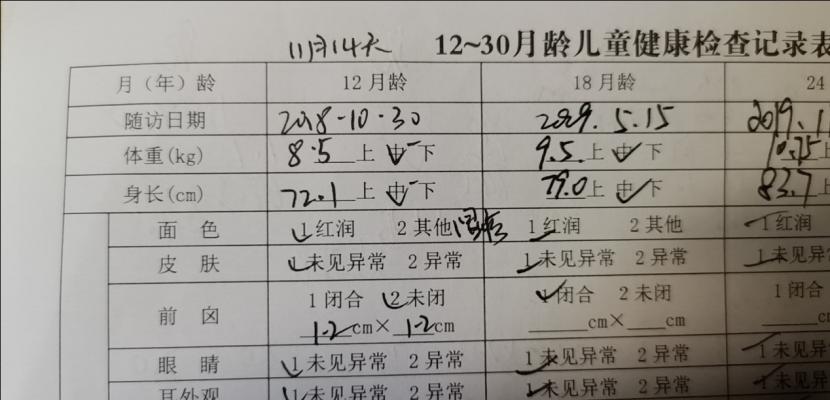 11月14天 12~30月龄儿童健康检查记录表
月（年）龄 12月龄 18月龄 24
随访日期 2018-10-30 2019.5.15 2019.1
体重(kg) 8.5 上 中 下 9.5 上 中 下 10.75 上
身长(cm) 72.1 上 中 下 79.0 上 中 下 83.7 上
面 色 1红润 2其他 1红润 2其他 1红润
皮 肤 1未见异常 2异常 1未见异常 2异常 1未见异常
前 囟 1闭合 2未闭 1闭合 2未闭 1闭合
1.2cm×1.2cm ____cm×____cm
眼 睛 1未见异常 2异常 1未见异常 2异常 1未见异常
耳外观 1未见异常 2异常 1未见异常 2异常 1未见异常